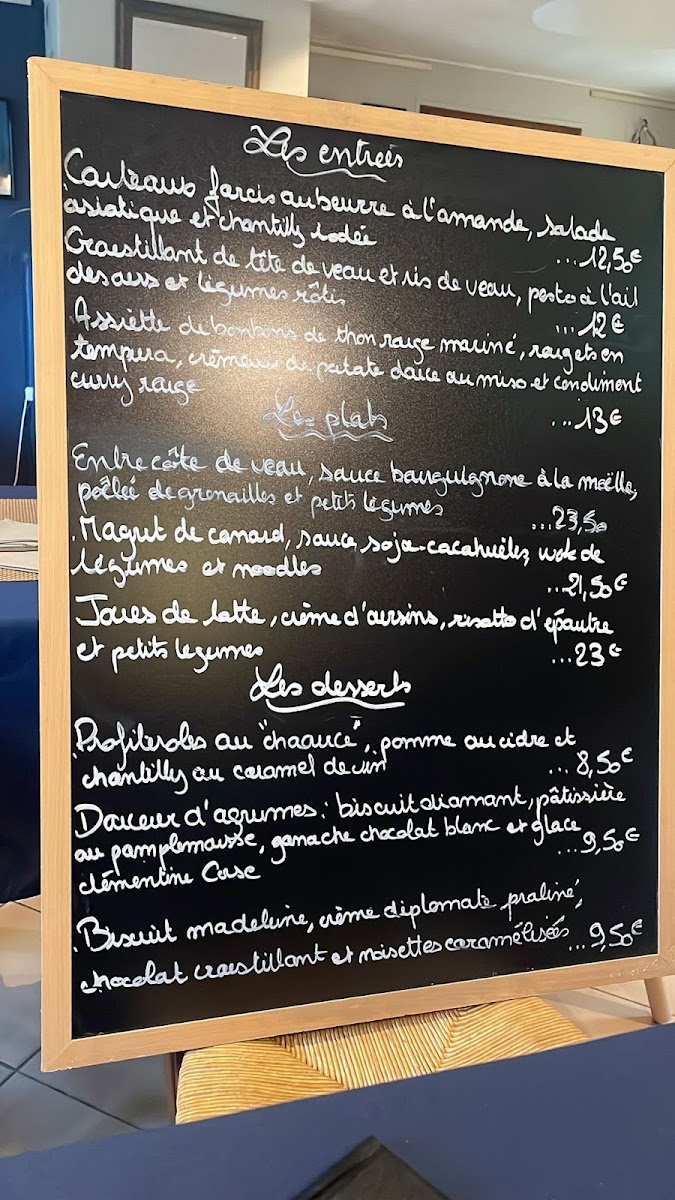 Les entrées
Couteaux farcis au beurre à l'amande, salade
asiatique et chantilly iodée
...12,50€
Croustillant de tête de veau et ris de veau, pesto à l'ail
des ours et légumes rôtis
...12€
. Assiette de bonbons de thon rouge mariné, rougets en
tempura, crémeux de patate douce au miso et condiment
curry rouge
...13€
Les plats
Entrecôte de veau, sauce bourguignonne à la moëlle,
poêlée de grenailles et petits légumes
...23,50
. Magret de canard, sauce soja-cacahuètes, wok de
légumes et noodles
...21,50€
Joues de lotte, crème d'oursins, risotto d'épautre
et petits légumes
...23€
Les desserts
. Profiteroles au "chaource", pomme au cidre et
chantilly au caramel de
... 8,50€
Douceur d'agrumes : biscuit diamant, pâtissière
au pamplemousse, ganache chocolat blanc et glace
...9,50€
clémentine Corse
. Biscuit madeleine, crème diplomate praliné,
chocolat croustillant et noisettes caramélisées ...9,50€